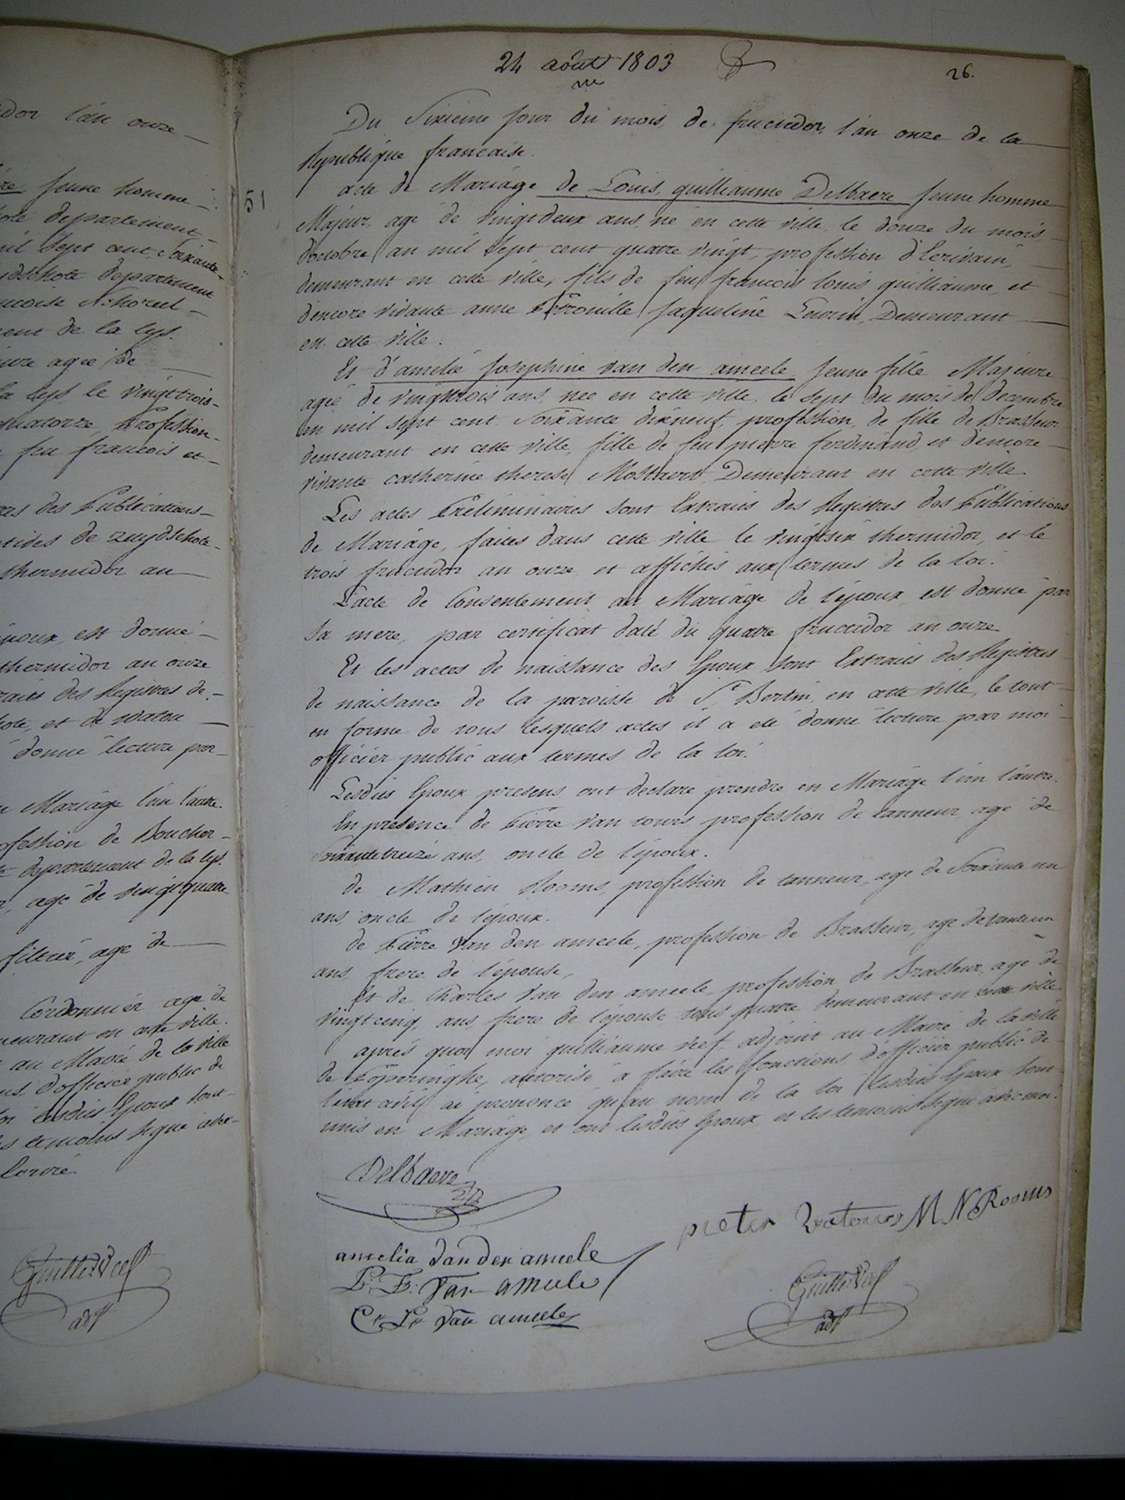 dor l'an onze
Jeune homme
département
mil sept cent Soixante
département
ment de la lys.
eure agée de
la lys le vingttrois
quatorze, Profession
feu francois et
des Publications
de zuydschote
thermidor an
époux, est donné
thermidor an onze
raits des Registres de
et de watou
donné lecture par
Mariage l'un l'autre.
ofession de Boucher
département de la lys.
age de vingtquatre
fileur, age de
Cordonnier age de
meurant en cette ville.
au Maire de la ville
d'officier public de
lesdits Epoux sont
temoins signé avec
Guille Veef
adt
24 août 1803
26.
51
Du Sixieme jour du mois de fructidor, l'an onze de la
Republique francaise.
acte de Mariage de Louis guilliaume Delbaere Jeune homme
Majeur, agé de vingtdeux ans, né en cette ville, le douze du mois
d'octobre an mil sept cent quatre vingt, profession d'Ecrivain,
demeurant en cette ville, fils de feu francois louis guilliaume et
d'encore vivante anne Petronille Jaqueline Demeurant
en cette ville.
Et d'amelie Josephine van den ameele Jeune fille Majeure
agée de vingttrois ans, née en cette ville, le sept du mois de Decembre
an mil sept cent Soixante dixneuf, profession de fille de Brasseur
demeurant en cette ville, fille de feu pierre ferdinand et d'encore
vivante catherine therese Mostaert Demeurant en cette ville
Les actes Préliminaires sont Extraits des Registres des Publications
de Mariage, faites dans cette ville le vingtsix thermidor, et le
trois fructidor an onze, et affichés aux termes de la loi.
L'acte de Consentement au Mariage de l'époux, est donné par
Sa mere, par certificat daté du quatre fructidor an onze
Et les actes de naissance des Epoux sont Extraits des Registres
de naissance de la paroisse de St Bertin en cette ville, le tout
en forme de tous lesquels actes il a été donné lecture par moi
officier public aux termes de la loi.
Lesdits Epoux presens ont declaré prendre en Mariage l'un l'autre.
En presence de Pierre van tours profession de tanneur, age de
Soixantetreize ans, oncle de l'époux.
de Mathieu Rooms, profession de tanneur, age de Soixante un
ans oncle de l'époux.
de Pierre van den ameele, profession de Brasseur, age de trente un
ans frere de l'épouse,
Et de Charles van den ameele profession de Brasseur, age de
vingtcinq ans, frere de l'épouse tous quatre demeurant en cette ville
après quoi moi guilliaume veef adjoint au Maire de la ville
de Poperinghe, autorisé à faire les fonctions d'officier public de
l'état civil ai prononcé qu'au nom de la loi lesdits Epoux sont
unis en Mariage, et ont lesdits Epoux, et les temoins signé avec moi.
Delbaere
pieter M N Rooms
amelia van den ameele
P: F: van amele
C: L: van ameele
Guille Veef
adt